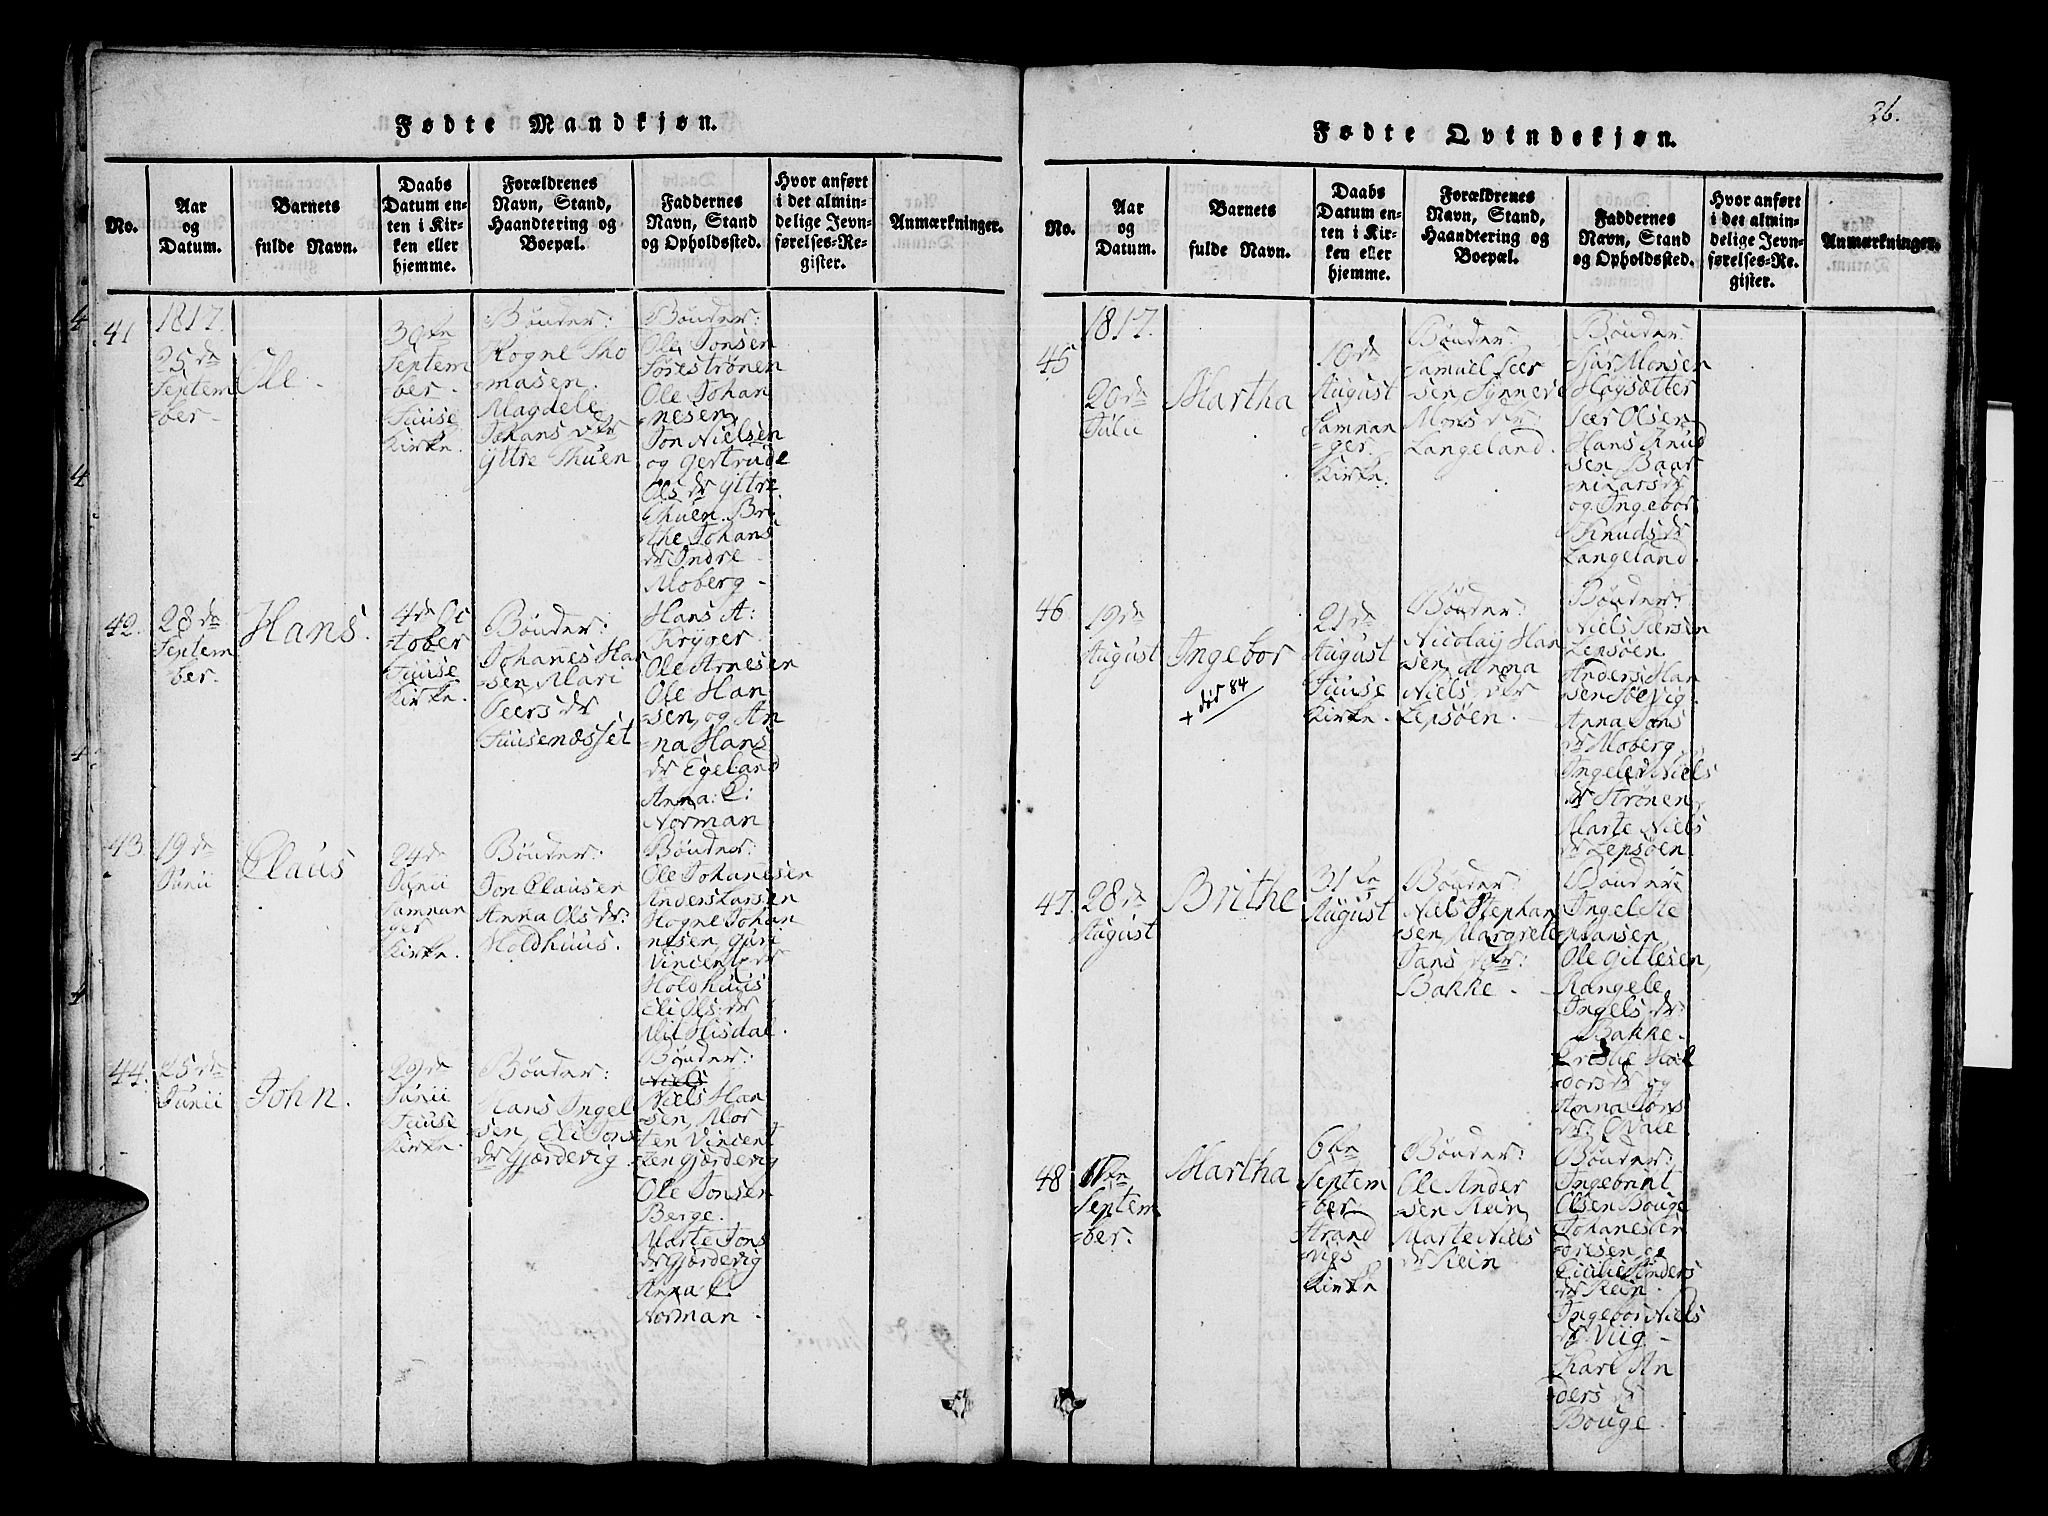 Fødte Mandkjøn.
No.
Aar
og
Datum.
Barnets
fulde Navn.
Daabs
Datum en-
ten i Kir-
ken eller
hjemme.
Forældrenes
Navn, Stand,
Haandtering og
Boepæl.
Faddernes
Navn, Stand
og Opholdssted.
Hvor anført
i det almin-
delige Jevn-
førelses-Re-
gister.
Anmærkninger.
41
1817.
25de
Septem
-ber-
Ole-
30te
Septem
ber-
Fuuse
Kirke.
Bønder:
Hogne Tho
-masen.
Magdele
Johans dtr
Yttre Thuen
Bønder:
Ole Jonsen
Sørestrønen
Ole Johan
-nesen,
Jon Nielsen
og Gertrude
Ols dr Yttre
Thuen. Bri
-the Johans
dr Indre
Moberg-
42.
28de
Septem
ber.
Hans.
4de Oc
-tober
Fuuse
Kirke.
Bønder:
Johannes Han
-sen, Mari
Peers dr
Fuusenæsset
Hans A:
Krÿger
Ole Arnesen
Ole Han
-sen, og An
-na Hans
dr Egeland
Anna: C:
Norman
43.
19de
Junii
Claus
24de
Junii
Samnan
ger
Kirke.
Bønder:
Jon Clausen
Anna Ols dr:
Holdhuus.
Bønder:
Ole Johannesen
Anders Larsen
Hogne Johan
nesen, Guri
Vincents dr
Holdhuus
Eli Ols: dr
Hisdal.
44.
25de
Junii
John.
29de
Junii
Fuuse
Kirke.
Bønder:
Hans Ingel
-sen, Eli Jons
dr Gjærdevig
Bønder:
Niels
Niels Han
-sen, Mor
ten Vincent
-zen Gjærdevig
Ole Jonsen
Berge.
Marte Jons
dr Gjærdevig
Anna C.
Norman-
26.
Fødte Qvindekjøn.
No.
Aar
og
Datum.
Barnets
fulde Navn.
Daabs
Datum en-
ten i Kir-
ken eller
hjemme.
Forældrenes
Navn, Stand,
Haandtering og
Boepæl.
Faddernes
Navn, Stand
og Opholdssted.
Hvor anført
i det almin-
delige Jevn-
førelses-Re-
gister.
Anmærkninger.
45
1817.
20de
Julii
Martha
10de
August
Samnan
-ger.
Kirke.
Bønder:
Samuel Peer
sen, Synneve
Mons dr
Langeland.
Bønder:
Sjur Monsen
Høysætter
Peer Olsen
Hans Knud
sen, Baar
og Ingebor
Knuds dr
Langeland.
46
19de
August
Ingebor
+ död 84
21de
August
Fuuse
Kirke.
Bønder:
Nicolaÿ Han
-sen, Anna
Niels dtr
Lepsøen.-
Bønder:
Niels Peersen
Lepsøen.
Anders Han
sen Sævig.
Anna Jons
dr Moberg
Ingeled Niels
dr Strønen,
Marte Niels
dr Lepsøen.
47.
28de
August
Brithe
31te
August
Bønder:
Niels Stephan
-sen, Margrete
Jans dtr:
Bakke-
Bønder:
Ingel Ste
-phansen
Ole Gittlesen,
Rangele
Ingels dr:
Bakke.
Hal
-dors dr og
Anna Jons
dr: Qvale.
48
1te
Septem
-ber.
Martha
6te
Septem
-ber
Strand
-vigs
Kirke
Bønder:
Ole Ander
-sen Rein,
Marte Niels
dr Rein
Bønder:
Ingebrigt
Olsen Bouge
Johannes An
dresen, og
Cicilie Anders
dr Rein.
Ingebor Niels
dr Viig-
Kari An
-ders dr
Bouge.